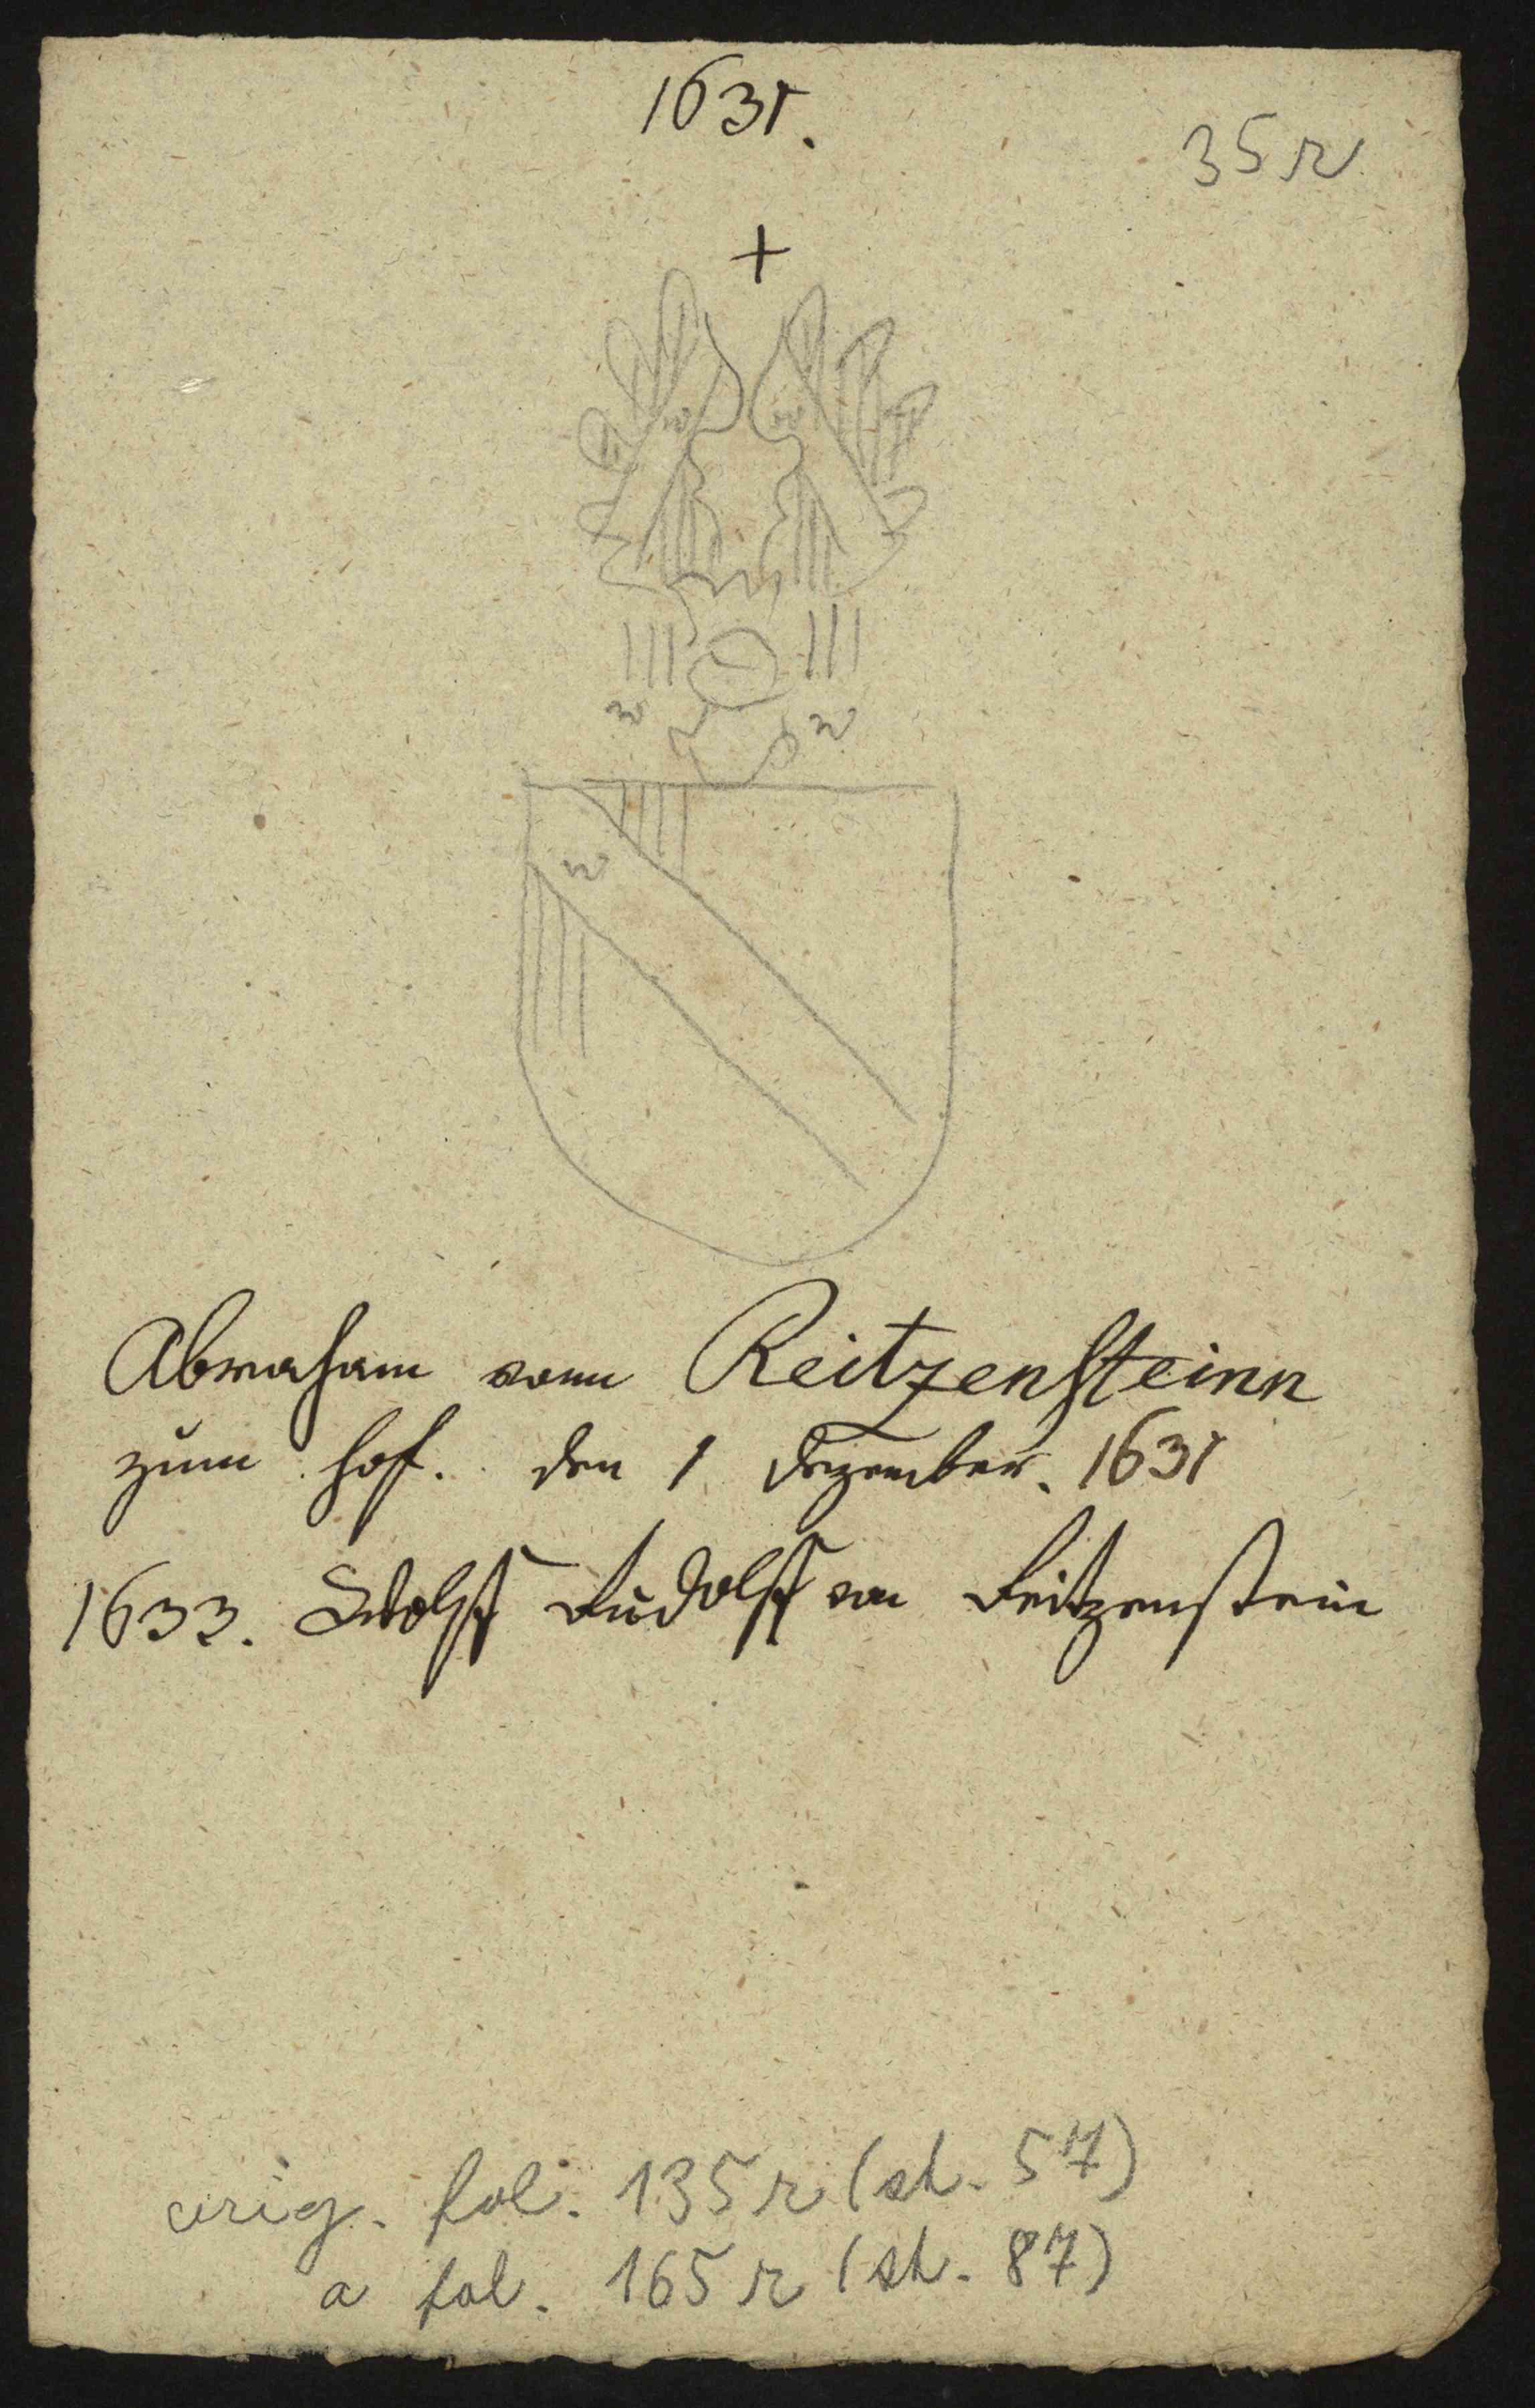 1631.
35 r
w w
w w
w
Abraham vonn Reitzensteinn
zum hof. den 1 Dezember. 1631
1633. Wolff Rudolff von Reitzenstein
orig. fol. 135 r (st. 57)
a fol. 165 r (st. 87)